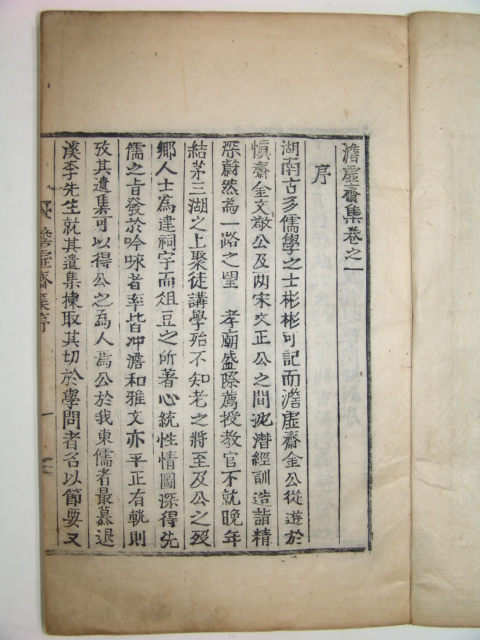 澹虛齋集卷之一
序
湖南古多儒學之士彬彬可記而澹虛齋金公從遊於
愼齋金文敬公及两宋文正公之間沈潛經訓造詣精
深蔚然為一路之望　孝廟盛際薦授敎官不就晩年
結茅三湖之上聚徒講學殆不知老之將至及公之歿
鄕人士為建祠宇而俎豆之所著心統性情圖深得先
儒之旨發於吟咏者率皆冲澹和雅文亦平正有軌則
攷其遺集可以得公之為人焉公於我東儒者最慕退
溪李先生就其遺集揀取其切於學問者名以節要又
澹虛齋集序
一